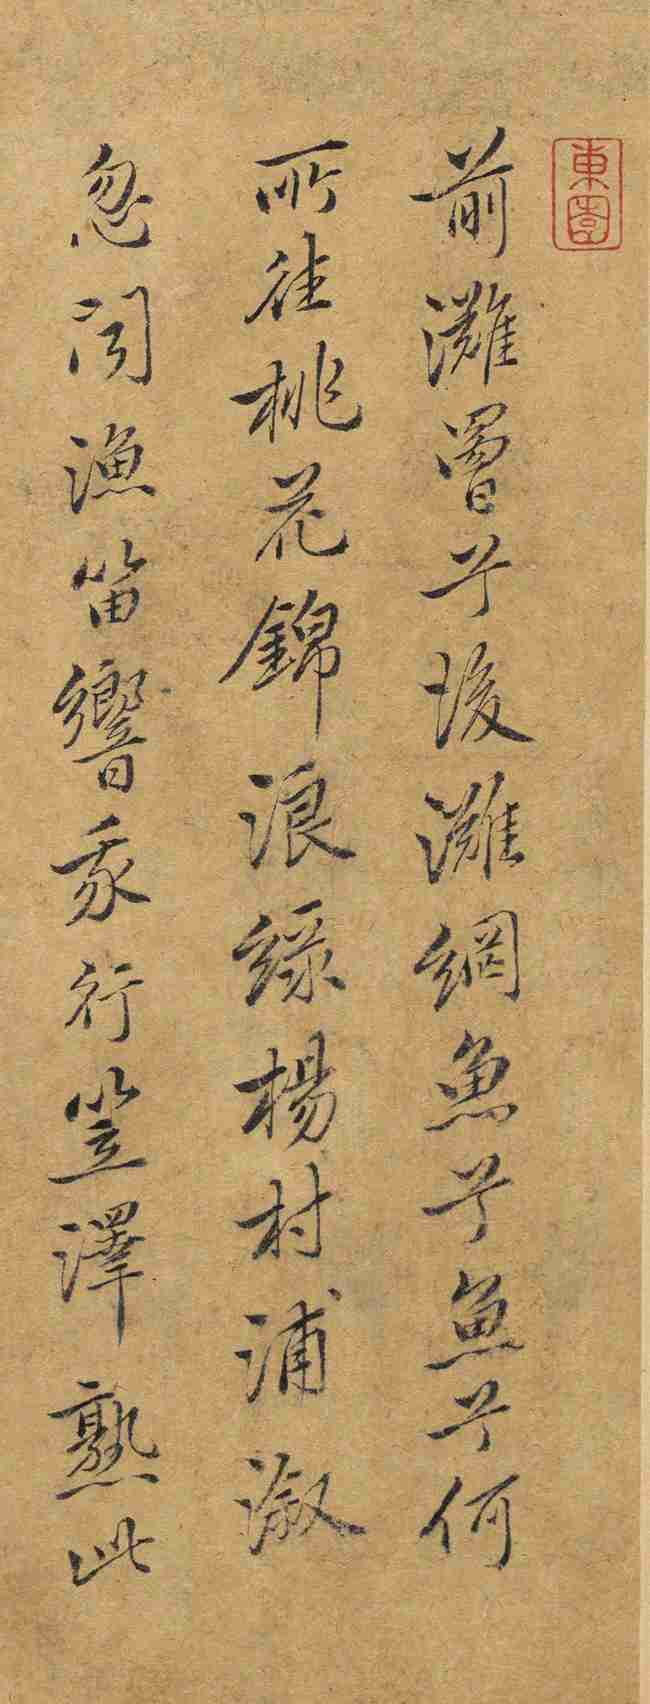 東園
前灘罾兮後灘網魚兮魚兮何
所往桃花錦浪綠楊村浦漵
忽聞漁笛響我行笠澤熟此